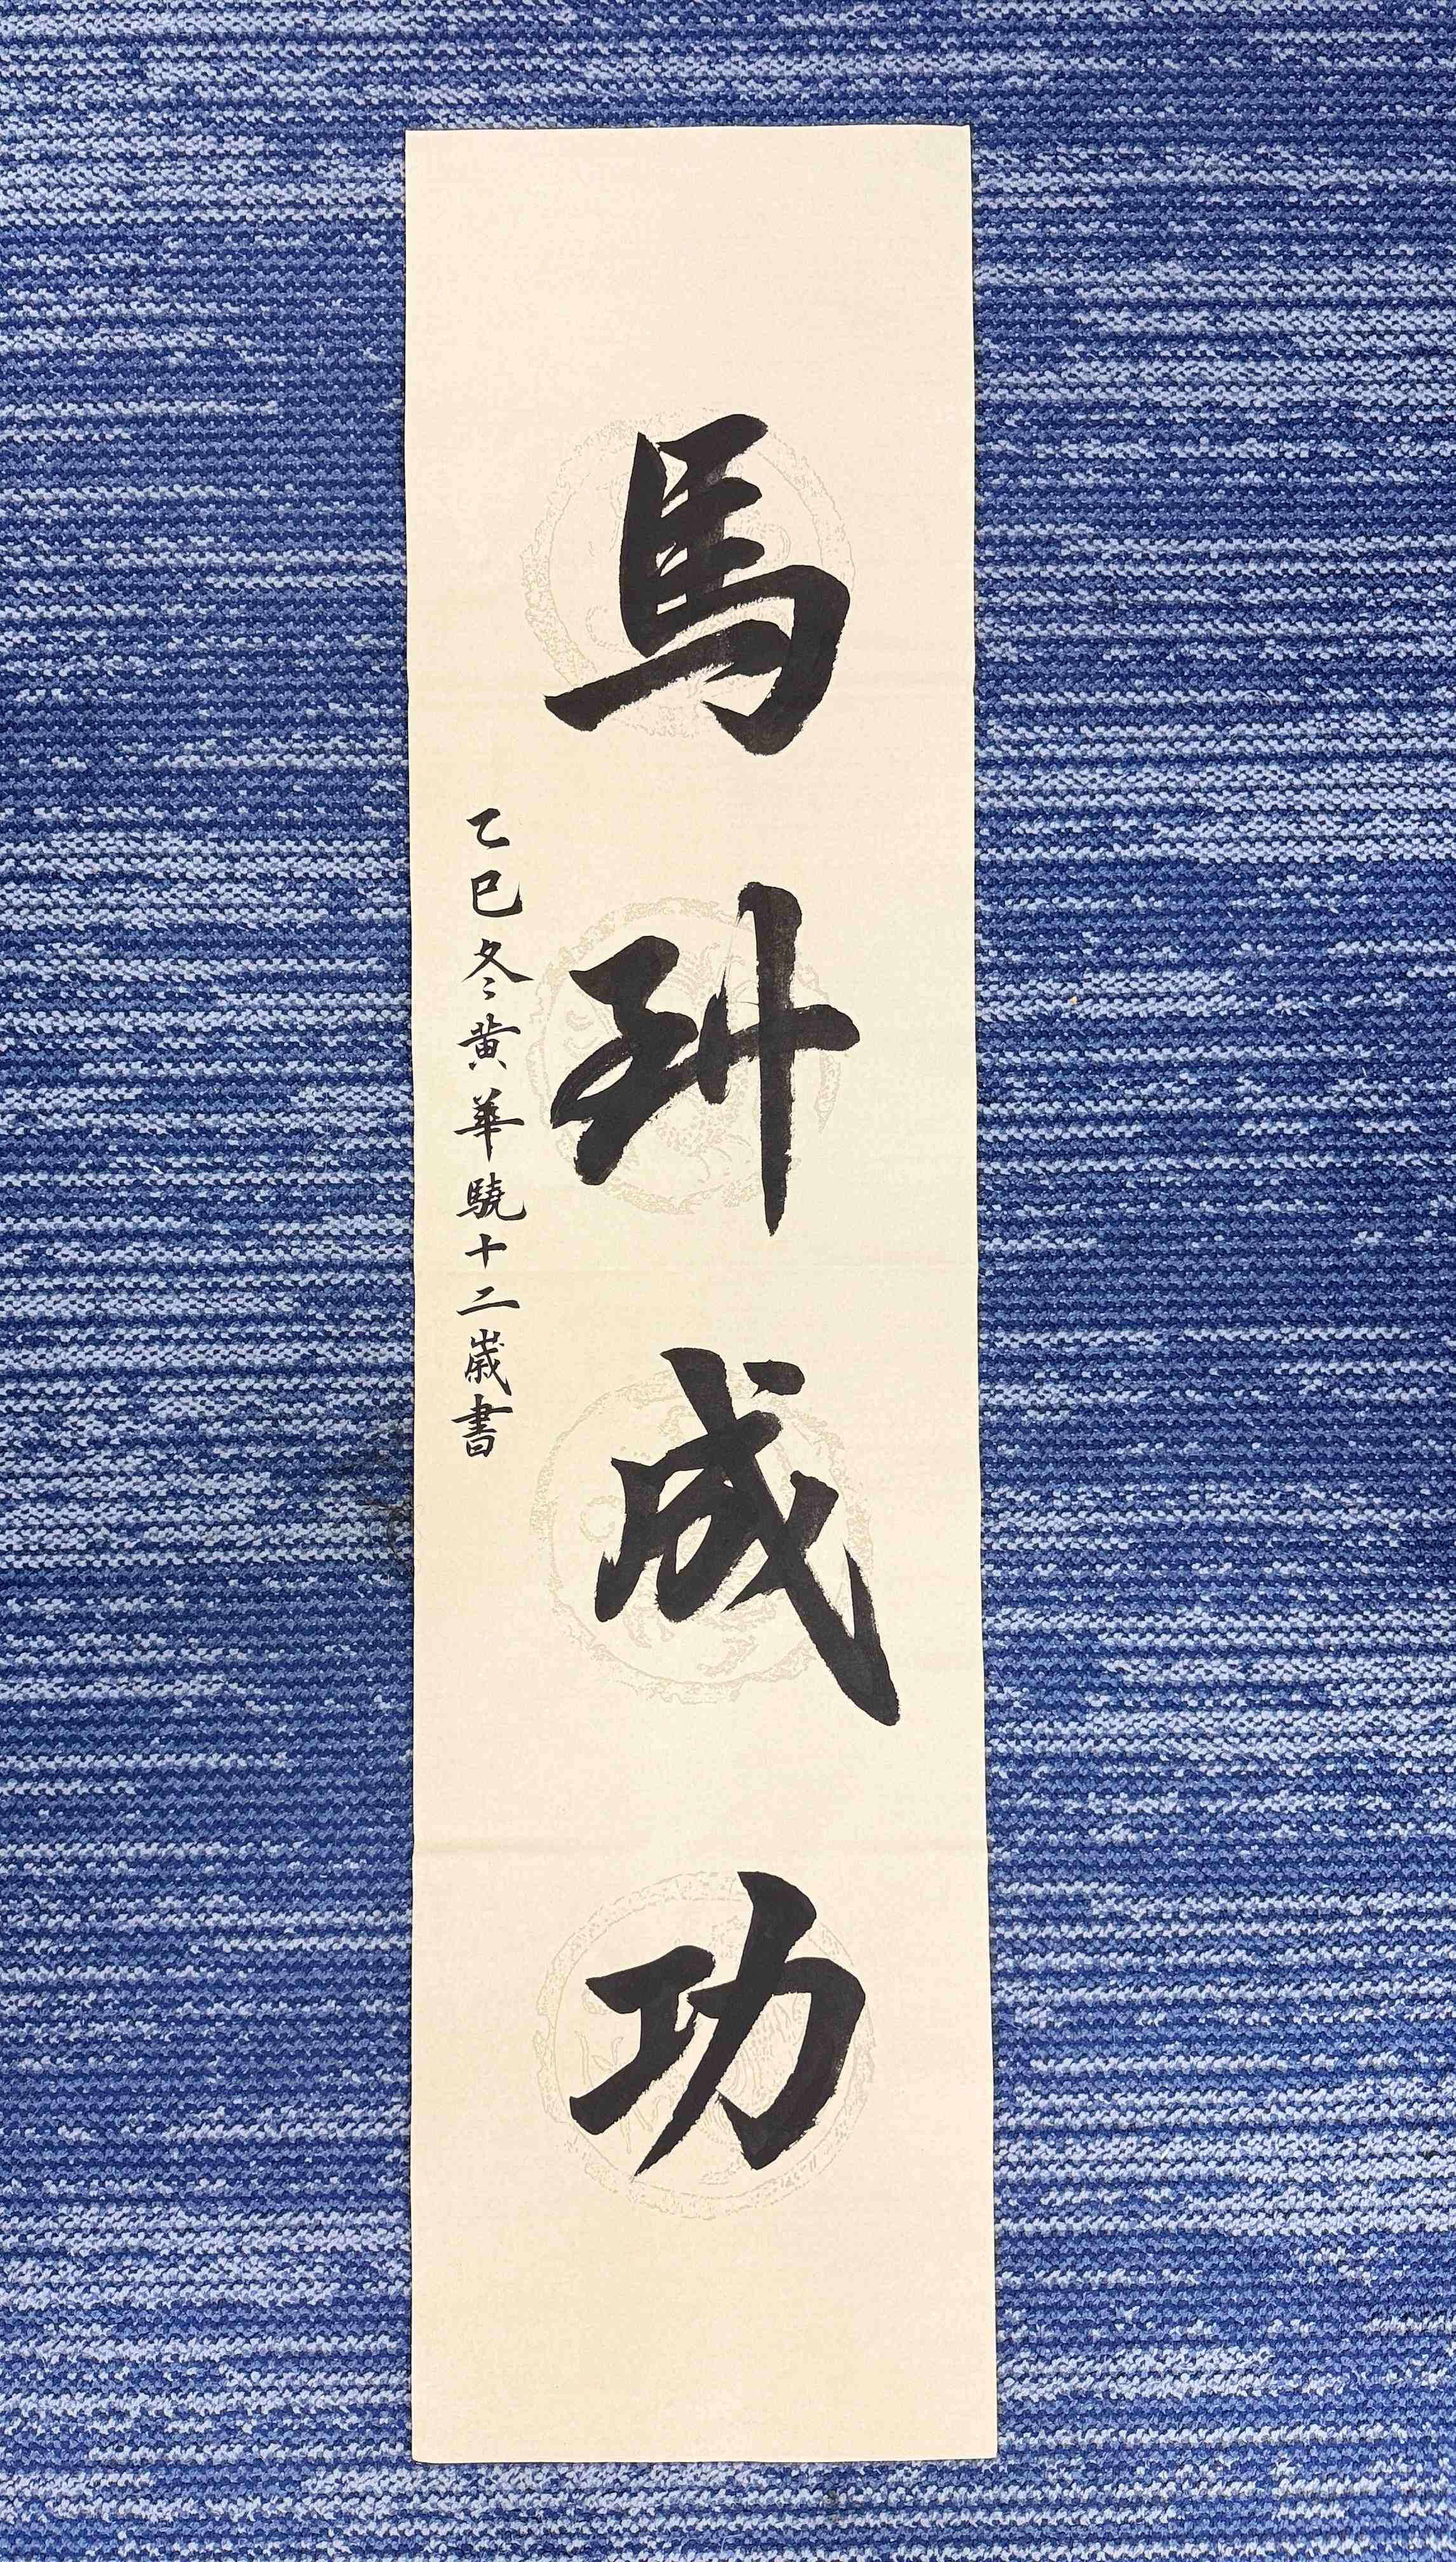 馬到成功
乙巳冬黄華驍十二歲書